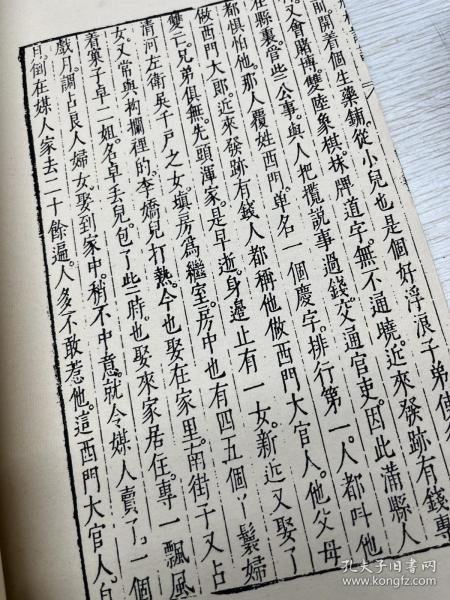 前。開着個生藥鋪。從小兒也是個好浮浪子弟。使
又會賭博。雙陸象棋。抹牌道字。無不通曉。近來發跡有錢。專
在縣裏。管些公事。與人把攬說事過錢。交通官吏。因此滿縣人
都惧怕他。那人覆姓西門。單名一個慶字。排行第一。人都叫他
做西門大郎。近來發跡有錢。人都稱他做西門大官人。他父母
雙亡。兄弟俱無。先頭渾家。是早逝。身邊止有一女。新近又娶了
清河左衛吳千戶之女。填房爲繼室。房中也有四五個丫鬟婦
女。又常與构欄裡的。李嬌兒打熱。今也娶在家里。南街子又占
着窠子卓二姐。名卓丟兒。包了些時。也娶來家居住。專一飄風
戲月。調占良人婦女。娶到家中。稍不中意。就令媒人賣了。一個
月。倒在媒人家去二十餘遍。人多不敢惹他。這西門大官人。自
孔夫子旧书网
www.kongfz.com